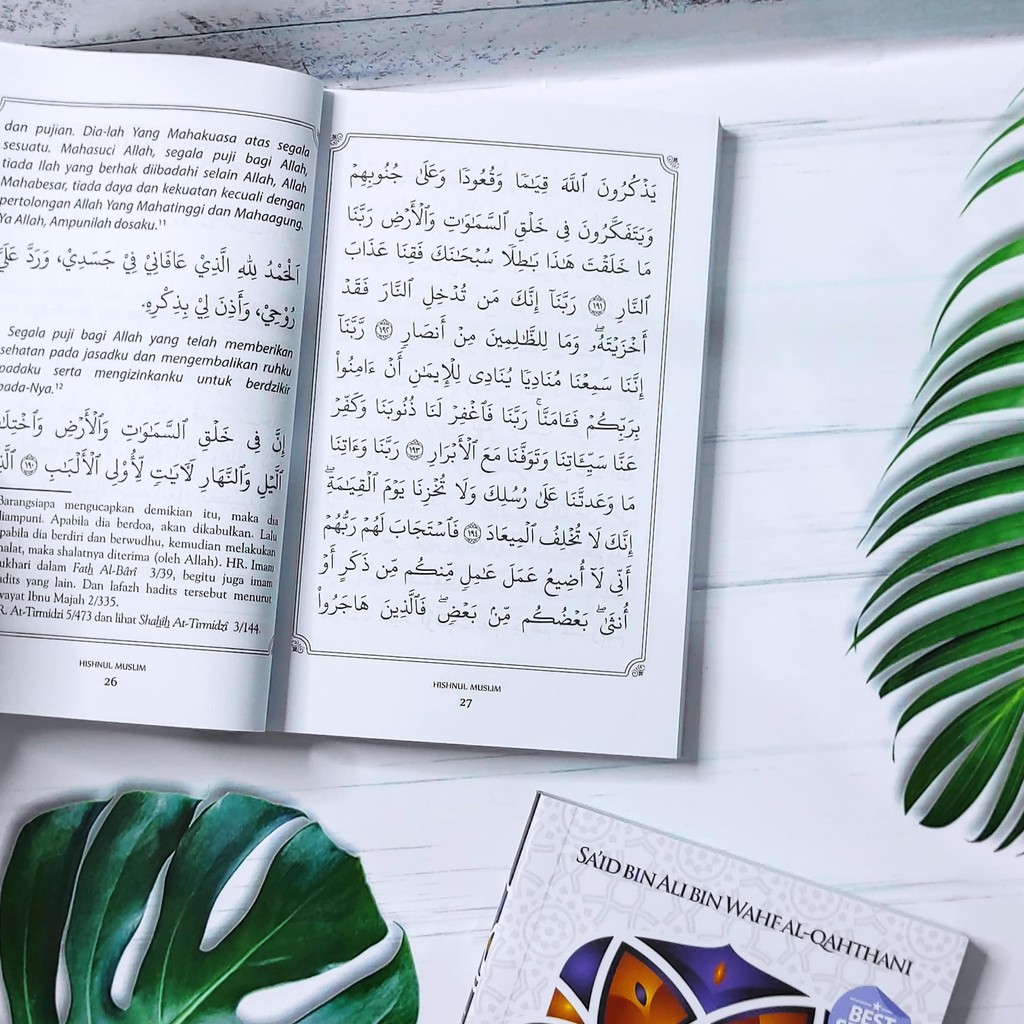 dan pujian. Dia-lah Yang Mahakuasa atas segala
sesuatu. Mahasuci Allah, segala puji bagi Allah,
tiada Ilah yang berhak diibadahi selain Allah, Allah
Mahabesar, tiada daya dan kekuatan kecuali dengan
pertolongan Allah Yang Mahatinggi dan Mahaagung.
Ya Allah, Ampunilah dosaku.¹¹
اَلْحَمْدُ لِلهِ الَّذِيْ عَافَانِيْ فِيْ جَسَدِيْ، وَرَدَّ عَلَيَّ
رُوْحِيْ، وَأَذِنَ لِيْ بِذِكْرِهِ.
Segala puji bagi Allah yang telah memberikan
sehatan pada jasadku dan mengembalikan ruhku
padaku serta mengizinkanku untuk berdzikir
pada-Nya.¹²
إِنَّ فِى خَلْقِ ٱلسَّمَٰوَٰتِ وَٱلْأَرْضِ
ٱلَّيْلِ وَٱلنَّهَارِ لَأٓيَٰتٍ لِّأُو۟لِى ٱلْأَلْبَٰبِ ١٩٠
Barangsiapa mengucapkan demikian itu, maka dia
diampuni. Apabila dia berdoa, akan dikabulkan. Lalu
apabila dia berdiri dan berwudhu, kemudian melakukan
halat, maka shalatnya diterima (oleh Allah). HR. Imam
ukhari dalam Fath Al-Bârî 3/39, begitu juga imam
hadits yang lain. Dan lafazh hadits tersebut menurut
wayat Ibnu Majah 2/335.
R. At-Tirmidzi 5/473 dan lihat Shahih At-Tirmidzî 3/144.
HISHNUL MUSLIM
26
يَذْكُرُونَ ٱللَّهَ قِيَٰمًا وَقُعُودًا وَعَلَىٰ جُنُوبِهِمْ
وَيَتَفَكَّرُونَ فِى خَلْقِ ٱلسَّمَٰوَٰتِ وَٱلْأَرْضِ رَبَّنَا
مَا خَلَقْتَ هَٰذَا بَٰطِلًا سُبْحَٰنَكَ فَقِنَا عَذَابَ
ٱلنَّارِ ١٩١ رَبَّنَآ إِنَّكَ مَن تُدْخِلِ ٱلنَّارَ فَقَدْ
أَخْزَيْتَهُۥۖ وَمَا لِلظَّٰلِمِينَ مِنْ أَنصَارٍ ١٩٢ رَّبَّنَآ
إِنَّنَا سَمِعْنَا مُنَادِيًا يُنَادِى لِلْإِيمَٰنِ أَنْ ءَامِنُوا۟
بِرَبِّكُمْ فَـَٔامَنَّاۚ رَبَّنَا فَٱغْفِرْ لَنَا ذُنُوبَنَا وَكَفِّرْ
عَنَّا سَيِّـَٔاتِنَا وَتَوَفَّنَا مَعَ ٱلْأَبْرَارِ ١٩٣ رَبَّنَا وَءَاتِنَا
مَا وَعَدتَّنَا عَلَىٰ رُسُلِكَ وَلَا تُخْزِنَا يَوْمَ ٱلْقِيَٰمَةِۖ
إِنَّكَ لَا تُخْلِفُ ٱلْمِيعَادَ ١٩٤ فَٱسْتَجَابَ لَهُمْ رَبُّهُمْ
أَنِّى لَآ أُضِيعُ عَمَلَ عَٰمِلٍ مِّنكُم مِّن ذَكَرٍ أَوْ
أُنثَىٰۖ بَعْضُكُم مِّنۢ بَعْضٍۖ فَٱلَّذِينَ هَاجَرُوا۟
HISHNUL MUSLIM
27
SA'ID BIN ALI BIN WAHF AL-QAHTHANI
BEST